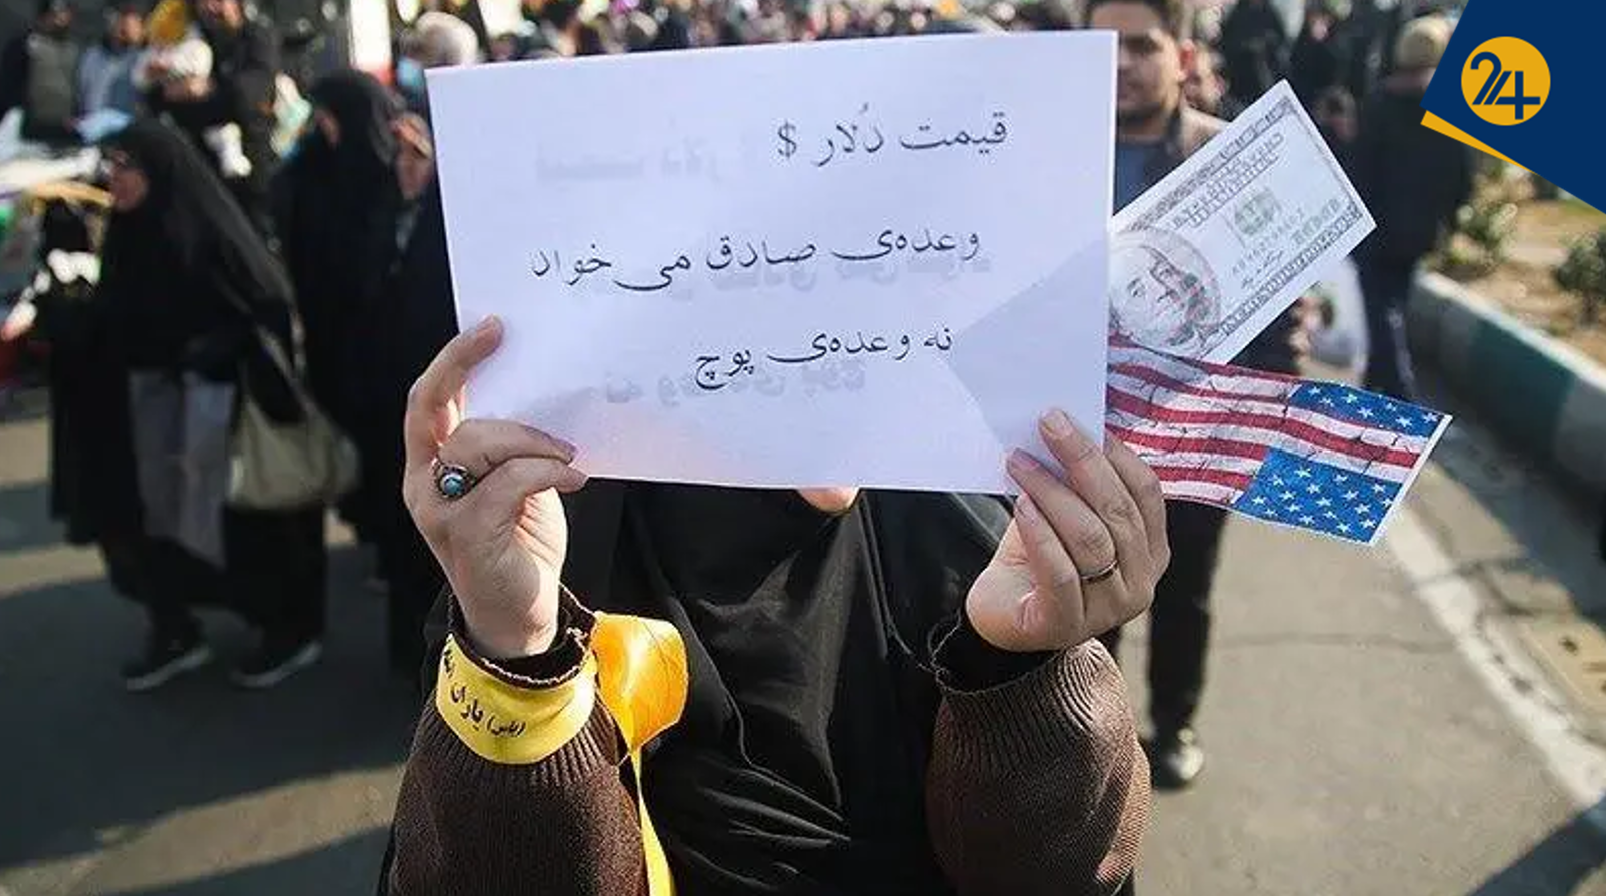 قیمت دُلار $
وعده‌ی صادق می‌خواد
نه وعده‌ی پوچ
یاران
24